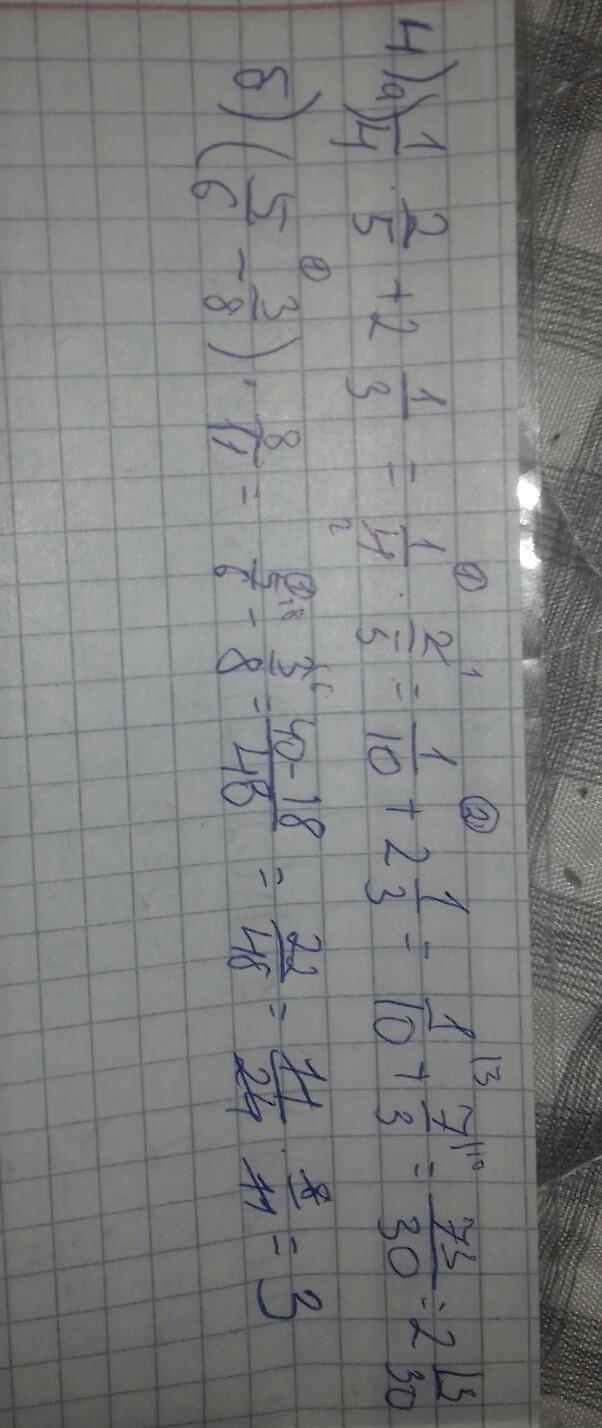 4) а) 1/4 · 2/5 + 2 1/3 = 1/4 · 2/5 = 1/10 + 2 1/3 = 1/10 + 7/3 = 73/30 = 2 13/30
б) (5/6 - 3/8) · 8/11 = 5/6 - 3/8 = 40-18/48 = 22/48 = 11/24 · 8/11 = 3